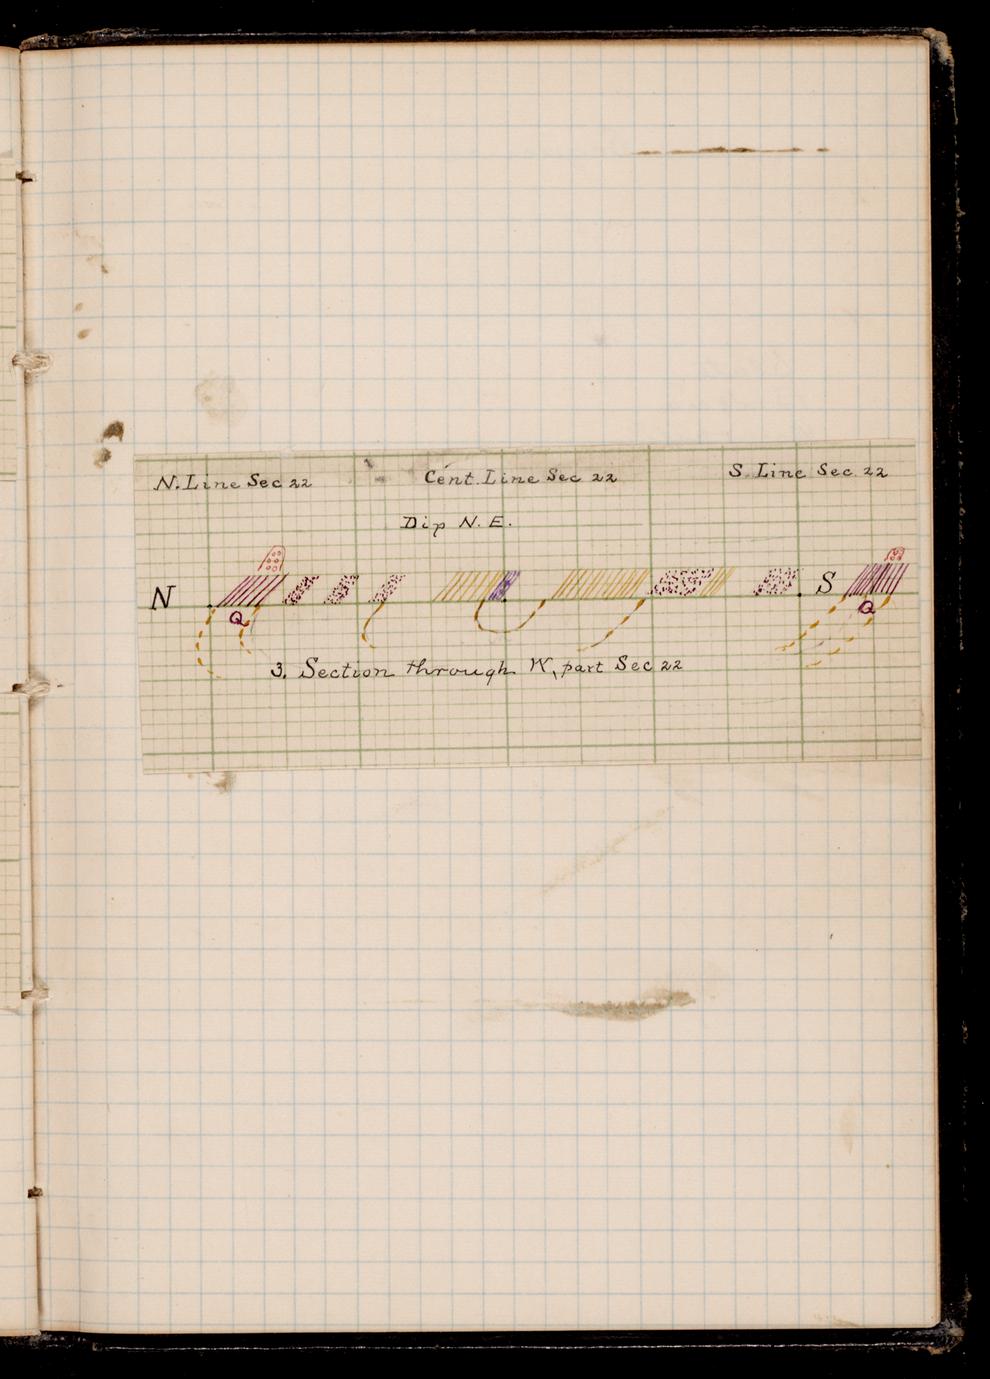 N. Line Sec 22 Cent. Line Sec 22 S. Line Sec. 22
Dip N. E.
N S
Q Q
3. Section through W. part Sec 22